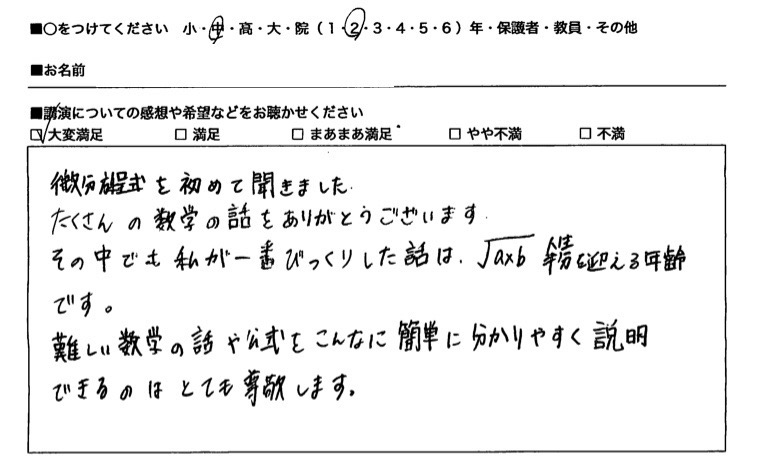 ■○をつけてください 小・中・高・大・院（1・2・3・4・5・6）年・保護者・教員・その他
■お名前
■講演についての感想や希望などをお聴かせください
☑大変満足 □ 満足 □ まあまあ満足 □ やや不満 □ 不満
微分方程式を初めて聞きました.
たくさんの数学の話をありがとうございます.
その中でも私が一番びっくりした話は、√a×b を迎える年齢
です。
難しい数学の話や公式をこんなに簡単に分かりやすく説明
できるのはとても尊敬します。